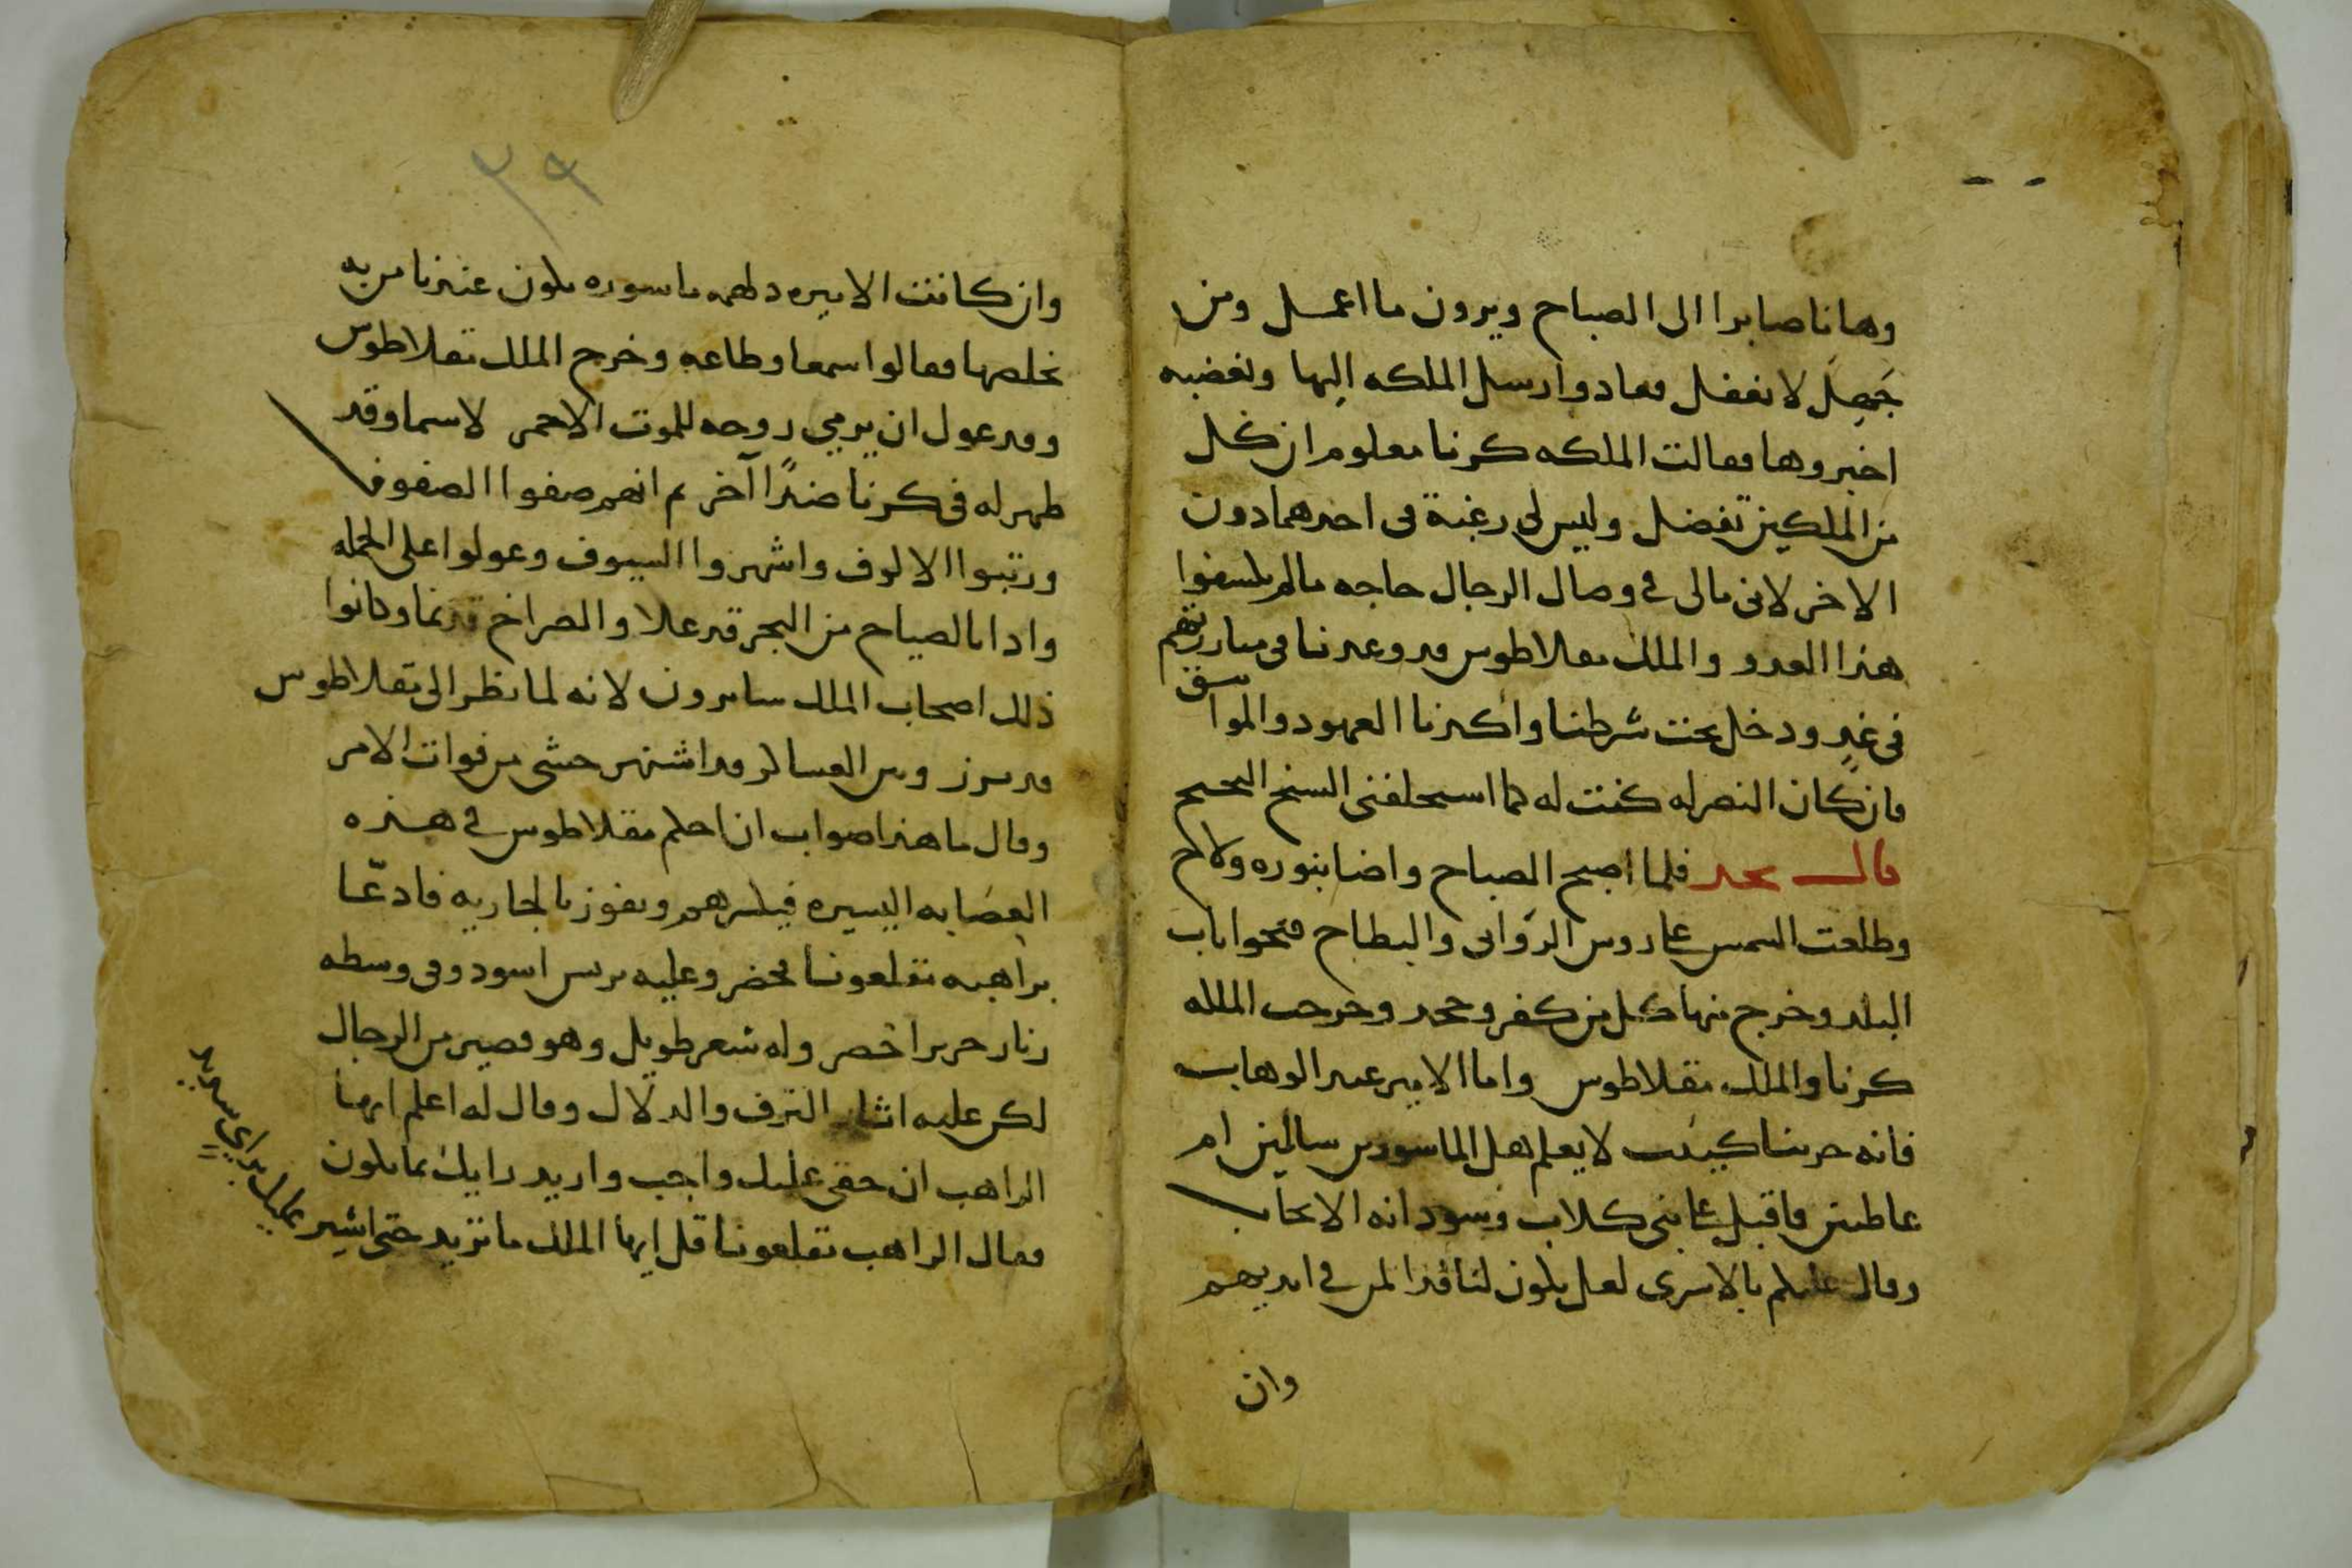 وها نا صابرا الى الصباح ويرون ما اعمل ومن
جَهِلَ لا نغفل فعادوا رسل الملكه اليها وتغضبه
اخبروها فقالت الملكه كرنا معلوم ان كل
من الملكين تفضل وليس لي رغبة في احدهما دون
الاخر لانى مالى في وصال الرجال حاجه ما لم يكشفوا
هذا العدو والملك تقلاطوس قد وعدنا في مبارزتهم
في غدٍ ودخل تحت شرطنا واكدنا العهود والمواثيق
فان كان النصر له كنت له كما استحلفنى المسيح
قال نجد فلما اصبح الصباح واضا بنوره ولاح
وطلعت الشمس على روس الروابى والبطاح فتحوا باب
البلد وخرج منها كل من كفر وجحد وخرجت الملكه
كرنا والملك تقلاطوس واما الامير عبد الوهاب
فانه حزينا كييب لا يعلم هل الماسورين سالمين ام
عاطبين فاقبل على بنى كلاب وسودانه الانجاب
وقال عليكم بالاسرى لعل يكون لنا فدا لمن في ايديهم
وان
٢٩
وان كانت الاميره دلهمه ماسوره يكون عندنا من به
نخلصها فقالوا سمعا وطاعه وخرج الملك تقلاطوس
وقد عول ان يرمي روحه للموت الاحمر لا سيما وقد
ظهر له في كرنا ضدًا آخر ثم انهم صفوا الصفوف
ورتبوا الالوف واشهروا السيوف وعولوا على الحمله
واذا بالصياح من البحر قد علا والصراخ قد نما وكانوا
ذلك اصحاب الملك سايرون لانه لما نظر الى تقلاطوس
قد برز وبين العساكر قد اشتهر خشى من فوات الامر
وقال ما هذا صواب ان احكم تقلاطوس في هذه
العصَابه اليسيره فيكسرهم ويفوز بالجاريه فادعّا
براهبه تقلعونا فحضر وعليه برنس اسود وفى وسطه
زنار حرير اخضر وله شعر طويل وهو قصير من الرجال
لكن عليه اثار الترف والدلال وقال له اعلم ايها
الراهب ان حقى عليك واجب واريد رايك بما يكون
فقال الراهب تقلعونا قل ايها الملك ما تريد حتى اشير
عليك براي سديد